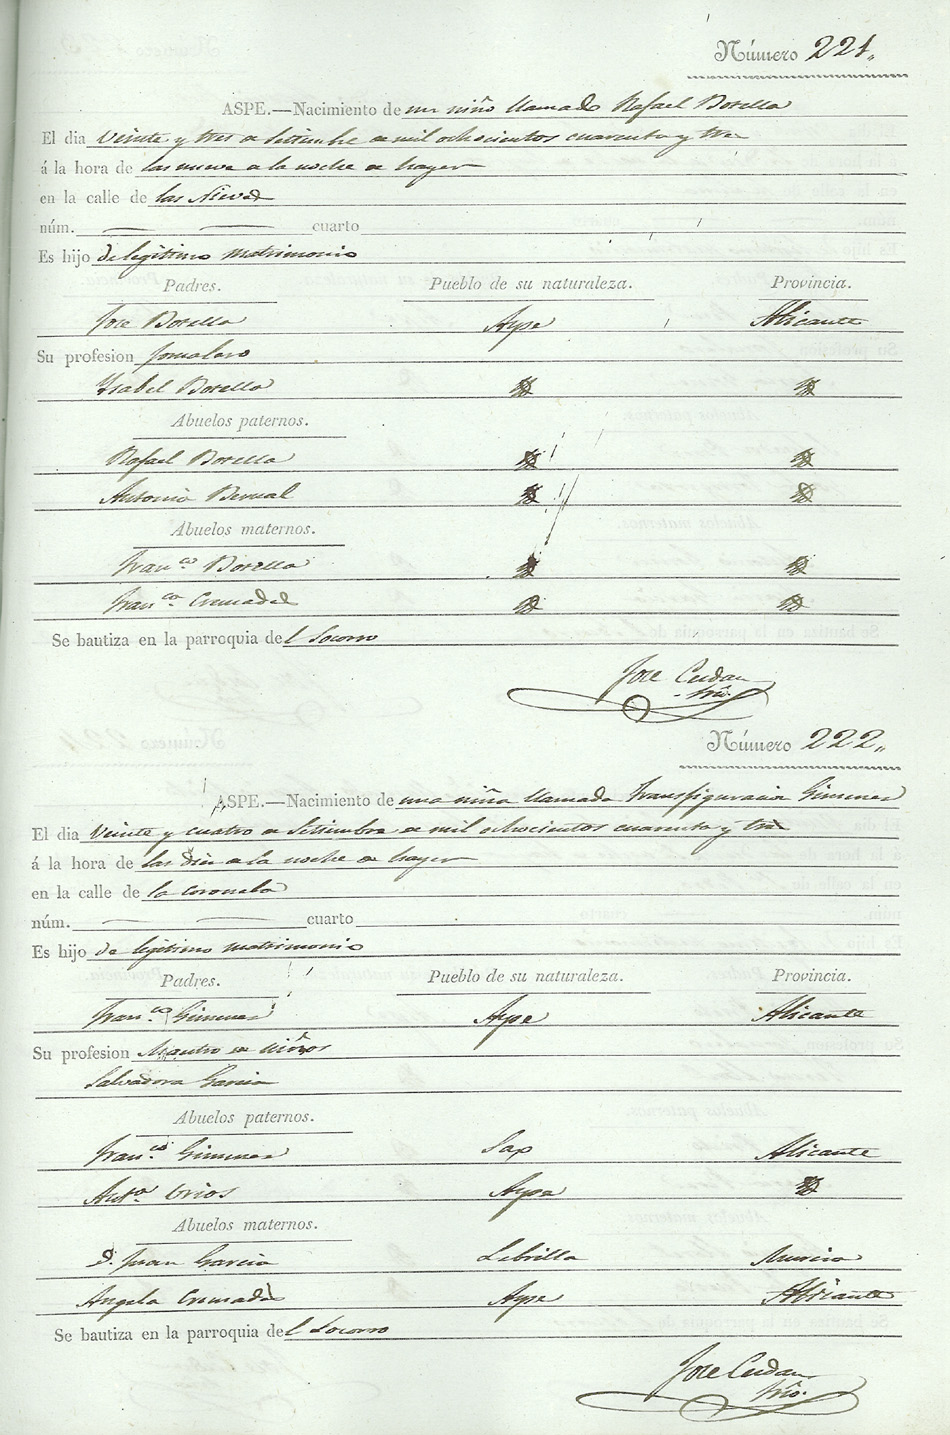 Número 221.,
ASPE.—Nacimiento de un niño llamado Rafael Botella
El dia Veinte y tres de Setiembre de mil ochocientos cuarenta y tres
á la hora de las nueve de la noche de hayer
en la calle de las Nieves
núm. cuarto
Es hijo de legitimo Matrimonio
Padres. Pueblo de su naturaleza. Provincia.
Jose Botella Aspe Alicante
Su profesion Jornalero
Ysabel Botella
Abuelos paternos.
Rafael Botella
Antonia Bernal
Abuelos maternos.
Fran.co Botella
Fran.ca Cremades
Se bautiza en la parroquia del Socorro
Jose
Número 222.,
ASPE.—Nacimiento de una niña llamada Transfiguracion Gimenez
El dia Veinte y cuatro de Setiembre de mil ochocientos cuarenta y tres
á la hora de las diez de la noche de hayer
en la calle de la Coronela
núm. cuarto
Es hijo de legitimo matrimonio
Padres. Pueblo de su naturaleza. Provincia.
Fran.co Gimenez Aspe Alicante
Su profesion Maestro de niños
Salvadora Garcia
Abuelos paternos.
Fran.co Gimenez Sax Alicante
Ant.a Aspe
Abuelos maternos.
D. Juan Garcia Lebrilla Murcia
Angela Cremades Aspe Alicante
Se bautiza en la parroquia del Socorro
Jose